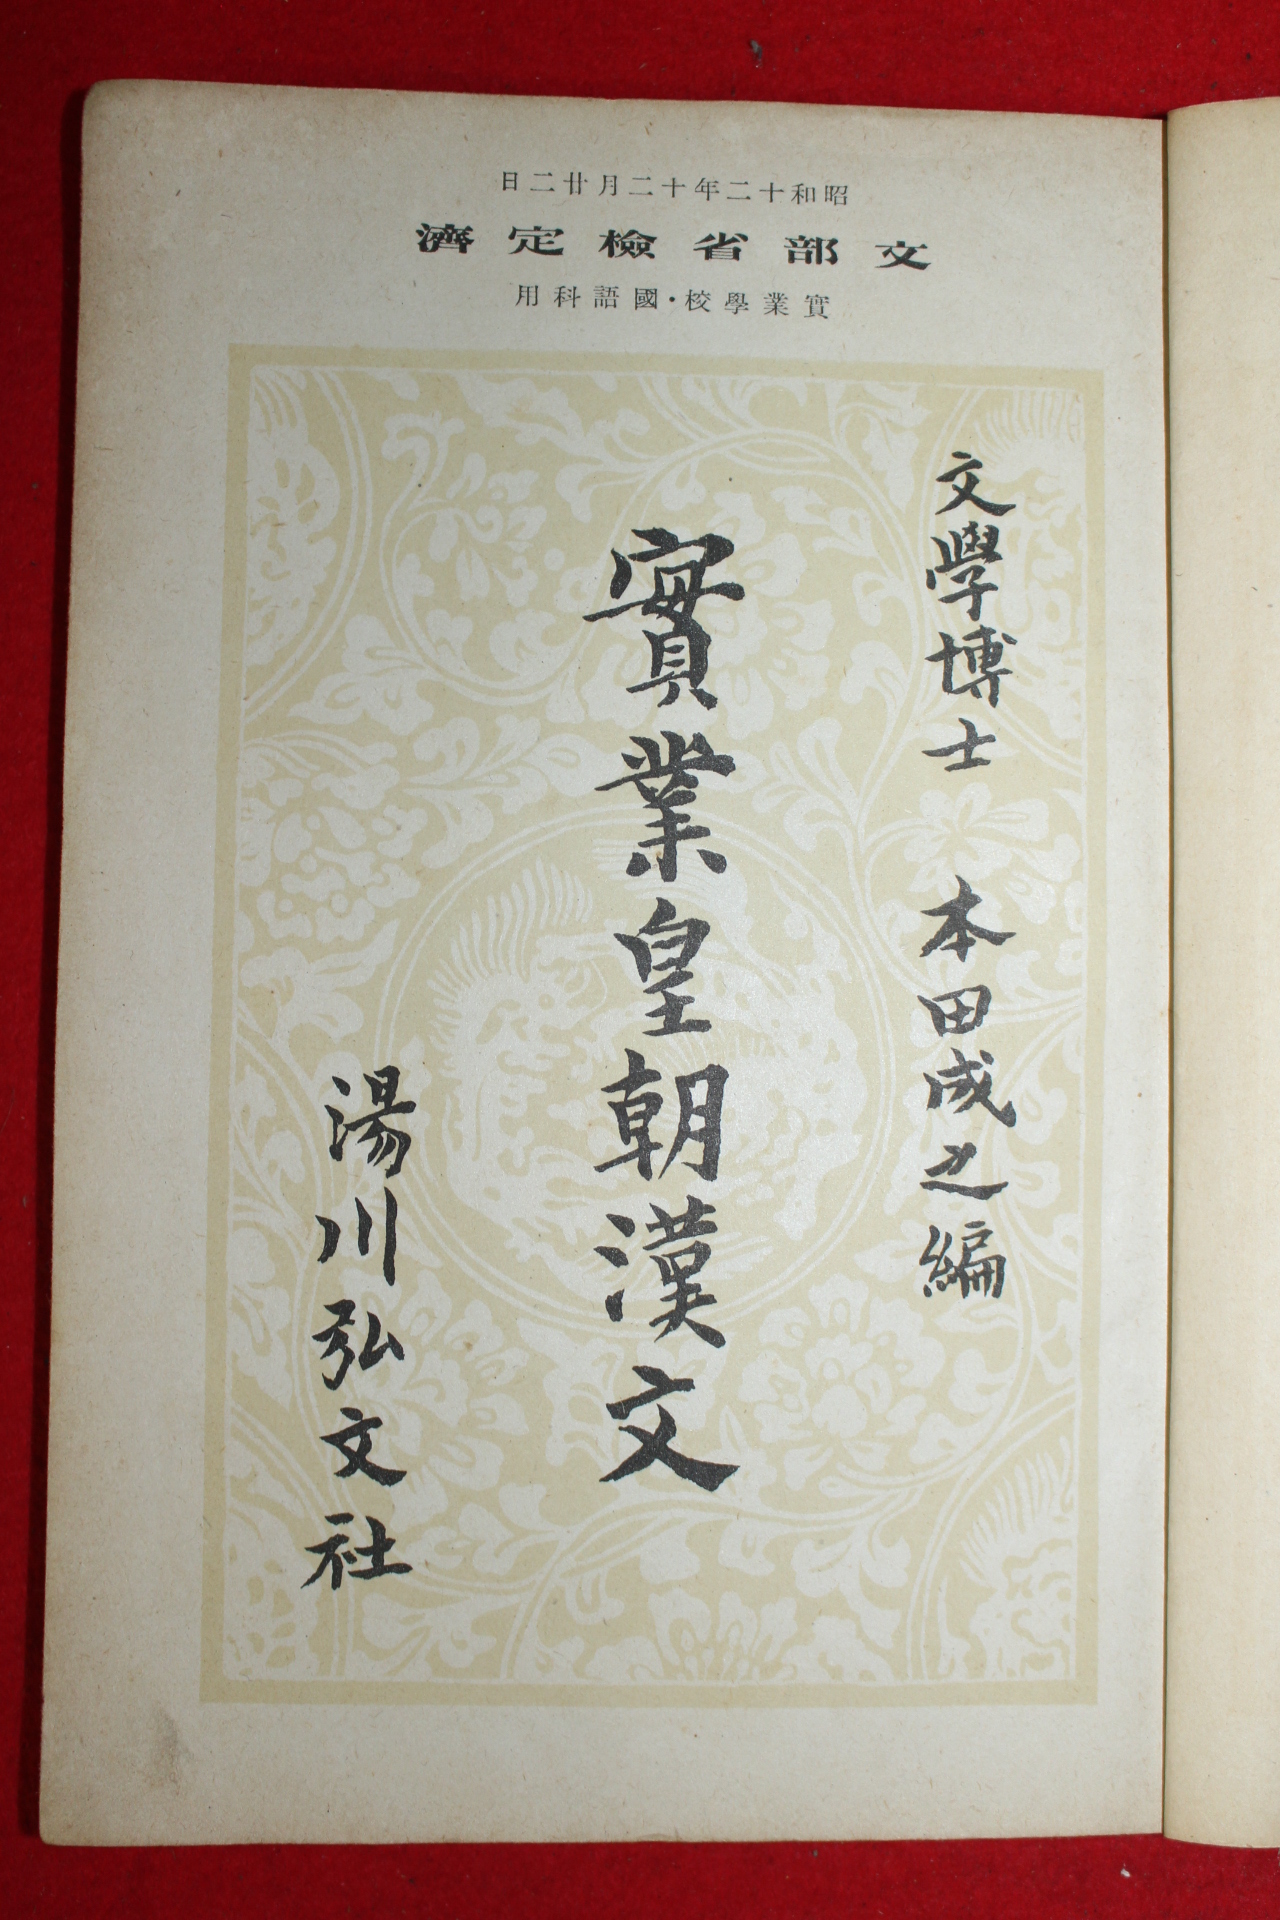 昭和十二年十二月廿二日
文部省檢定濟
實業學校・國語科用
文學博士 本田成之編
實業皇朝漢文
湯川弘文社